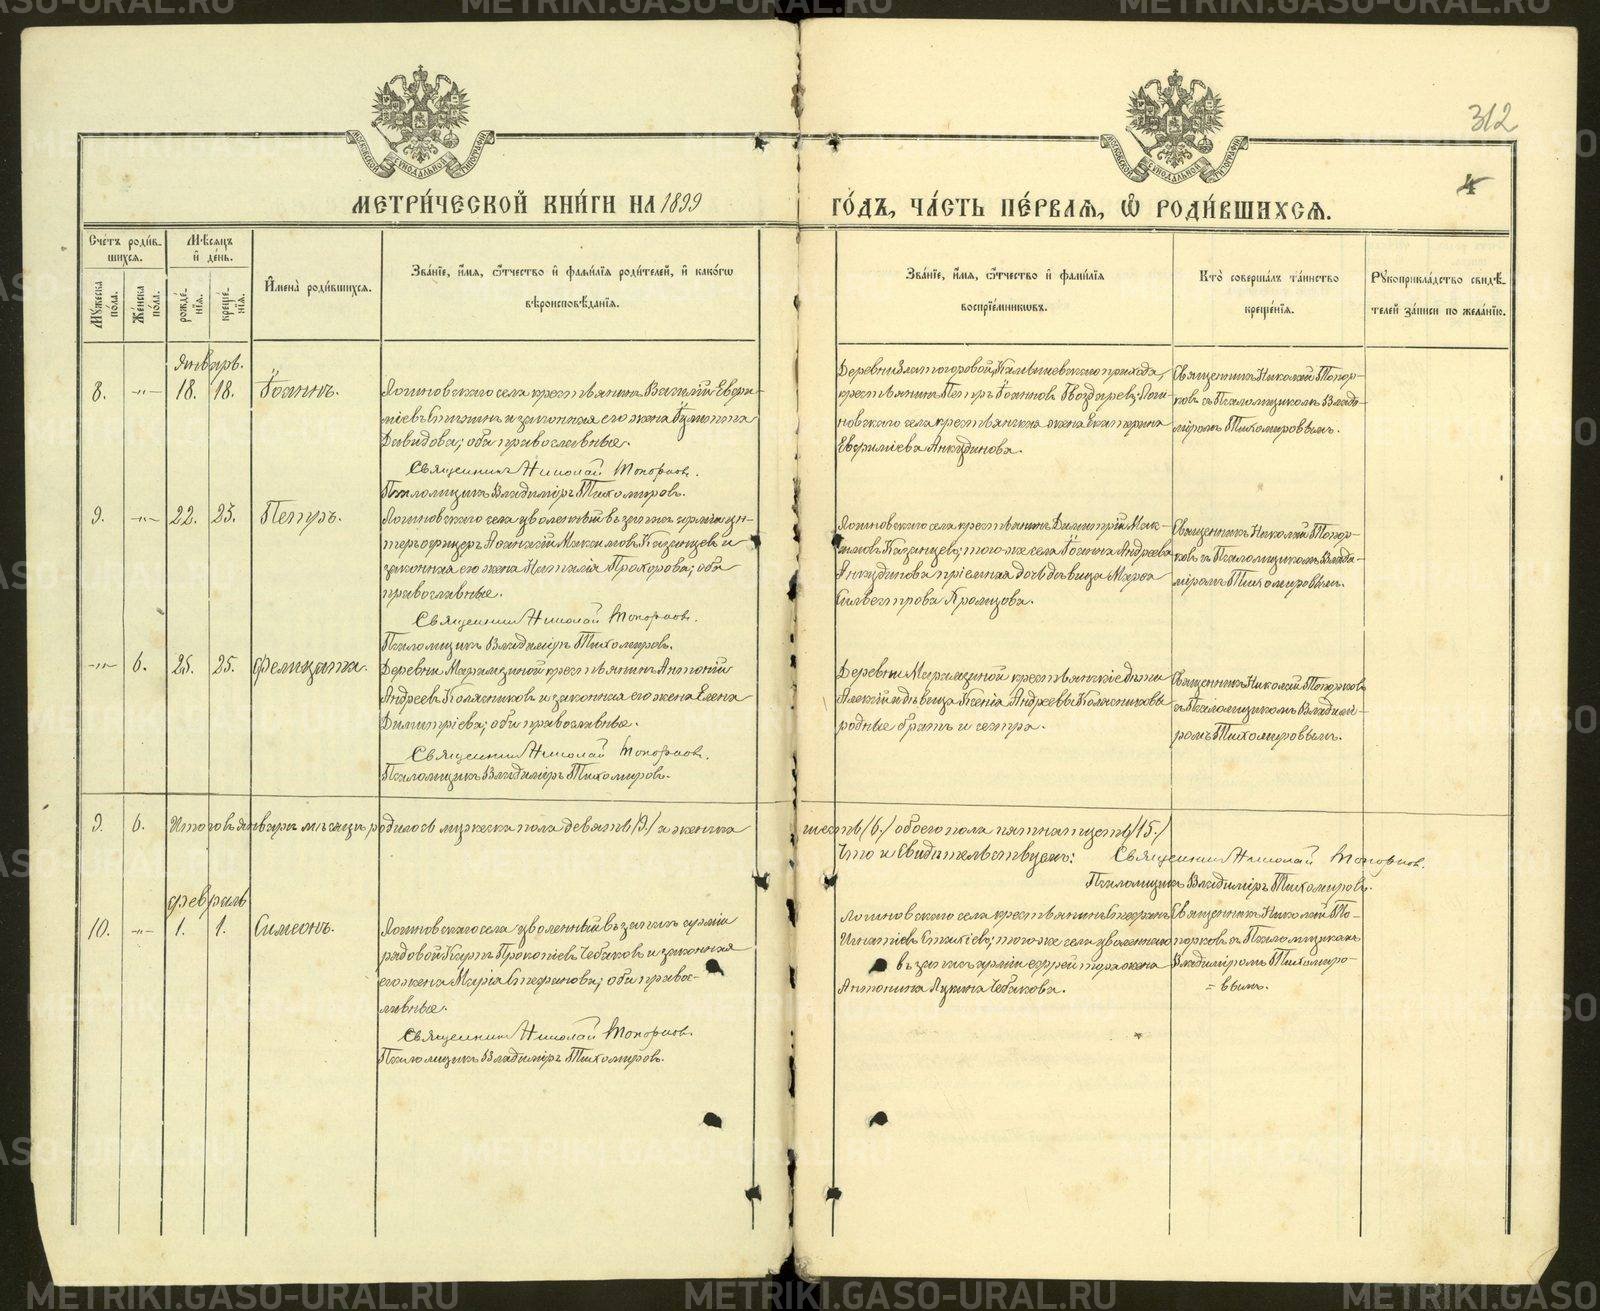 312
4
МЕТРИ́ЧЕСКОЙ КНИ́ГИ НА 1899
ГО́ДЪ, ЧА́СТЬ ПЕ́РВАЯ, Ѽ РОДИ́ВШИХСЯ.
Сче́тъ роди́в-
шихся.
Мꙋ́жеска пола.
Же́нска по́ла.
М́ѣсяцъ
и҆ де́нь.
рожде́-
нїя.
креще́-
нїя.
И҆мена̀ роди́вшихся.
Зва́нїе, и҆́мя, ѻ҆́тчество и҆ фами́лїя роди́телей, и҆ како́гѡ
вѣроисповѣ́данїя.
Зва́нїе, и҆́мя, ѻ҆́тчество и҆ фами́лїя
воспрїе́мниковъ.
Кто̀ соверша́лъ та́инство
креще́нїя.
Рꙋкоприкла́дство свидѣ́-
телей за́писи по жела́нїю.
Январь.
8. -"- 18. 18. Іоаннъ.
Логиновскаго села крестьянинъ Василій Евфи-
міевъ и законная его жена
Давидова; оба православные.
Священникъ Николай Топорковъ.
Псаломщикъ Владиміръ Тихомировъ.
Деревни Златогоровой, прихода,
крестьянинъ Петръ Іоанновъ Гвоздаревъ; Логи-
новскаго села крестьянская жена Екатерина
Евфиміева Анкудинова.
Священникъ Николай Топор-
ковъ съ Псаломщикомъ Влади-
міромъ Тихомировымъ.
9. -"- 22. 25. Петръ.
Логиновскаго села уволенный въ запасъ арміи ун-
теръ офицеръ Максимовъ Казанцевъ и
законная его жена Наталія Прохорова; оба
православные.
Священникъ Николай Топорковъ.
Псаломщикъ Владиміръ Тихомировъ.
Логиновскаго села крестьянинъ Димитрій Мак-
симовъ Казанцевъ; того же села Іоанна Андреева
Анкудинова пріемная дочь дѣвица Марѳа
Сильвестрова
Священникъ Николай Топор-
ковъ съ Псаломщикомъ Влади-
міромъ Тихомировымъ.
-"- 6. 25. 25. Фелицата.
Деревни Марамзиной крестьянинъ Антоній
Андреевъ Колясниковъ и законная его жена Елена
Димитріева; оба православные.
Священникъ Николай Топорковъ.
Псаломщикъ Владиміръ Тихомировъ.
Деревни Марамзиной крестьянскіе дѣти
Алексій и дѣвица Ксенія Андреевы Колясниковы
родные братъ и сестра.
Священникъ Николай Топорковъ
съ Псаломщикомъ Владимі-
ромъ Тихомировымъ.
9. 6. Итого въ январѣ мѣсяцѣ родилось мужеска пола девять /9./ а женска
шесть /6./ обоего пола пятнатцеть /15./
Что и Свидѣтельствуемъ: Священникъ Николай Топорковъ.
Псаломщикъ Владиміръ Тихомировъ.
Февраль
10. -"- 1. 1. Симеонъ.
Логиновскаго села уволенный въ запасъ арміи
рядовой Карпъ Прокопіевъ Чебаковъ и законная
его жена Марія Стефанова; оба правос-
лавные.
Священникъ Николай Топорковъ.
Псаломщикъ Владиміръ Тихомировъ.
Логиновскаго села крестьянинъ Стефанъ
Игнатіевъ того же села уволеннаго
въ запасъ арміи ефрейтора жена
Антонина Лукина Чебакова.
Священникъ Николай То-
порковъ съ Псаломщикомъ
Владиміромъ Тихомиро-
= вымъ.